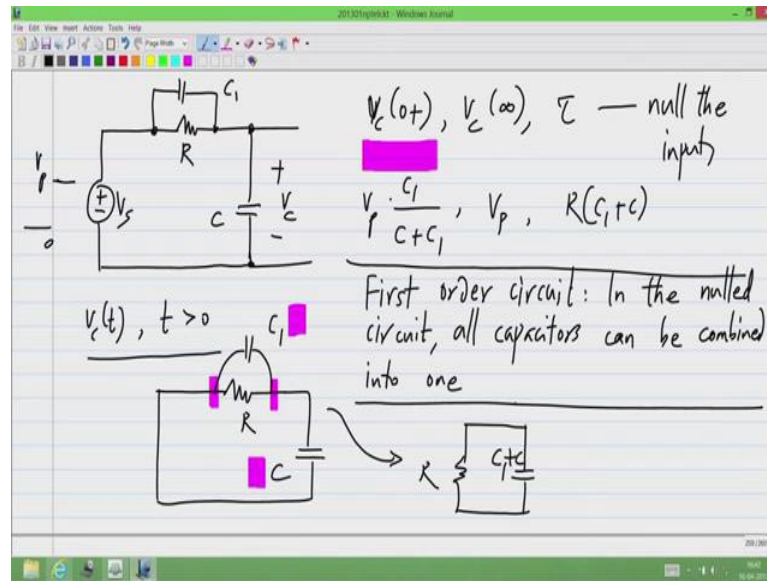 201301nptelckt - Windows Journal
File Edit View Insert Actions Tools Help
Page Width
B I
C₁
R
V_p
0
V_s
C
+
V_c
-
V_c(0+), V_c(∞), τ — null the
inputs
V_p · C₁/(C+C₁), V_p, R(C₁+C)
V_c(t), t>0
First order circuit: In the nulled
circuit, all capacitors can be combined
into one
C₁
R
C
R
C₁+C